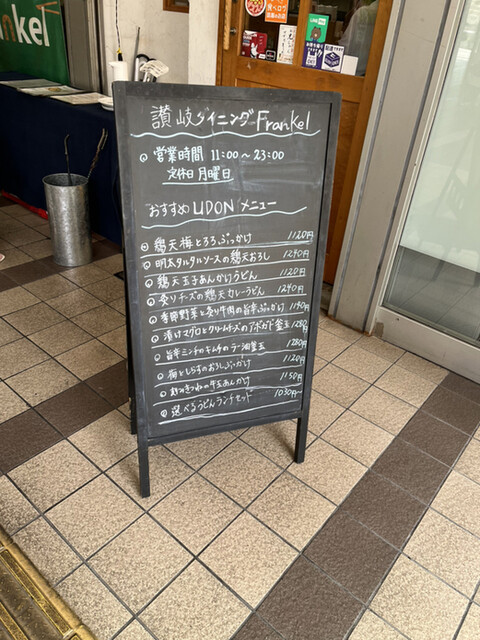 nkel
讃岐ダイニング Frankel
営業時間 11:00〜23:00
定休日 月曜日
おすすめ UDON メニュー
鶏天梅とろろぶっかけ 1120円
明太タルタルソースの鶏天おろし 1240円
鶏天玉子あんかけうどん 1120円
炙りチーズの鶏天カレーうどん 1240円
季節野菜と炙り牛肉の旨辛ぶっかけ 1190円
漬けマグロとクリームチーズのアボカド釜玉 1280円
旨辛ミンチのキムチのラー油釜玉 1280円
梅としらすのおろしぶっかけ 1120円
きつねの牛玉あんかけ 1150円
選べるうどんランチセット 1030円〜